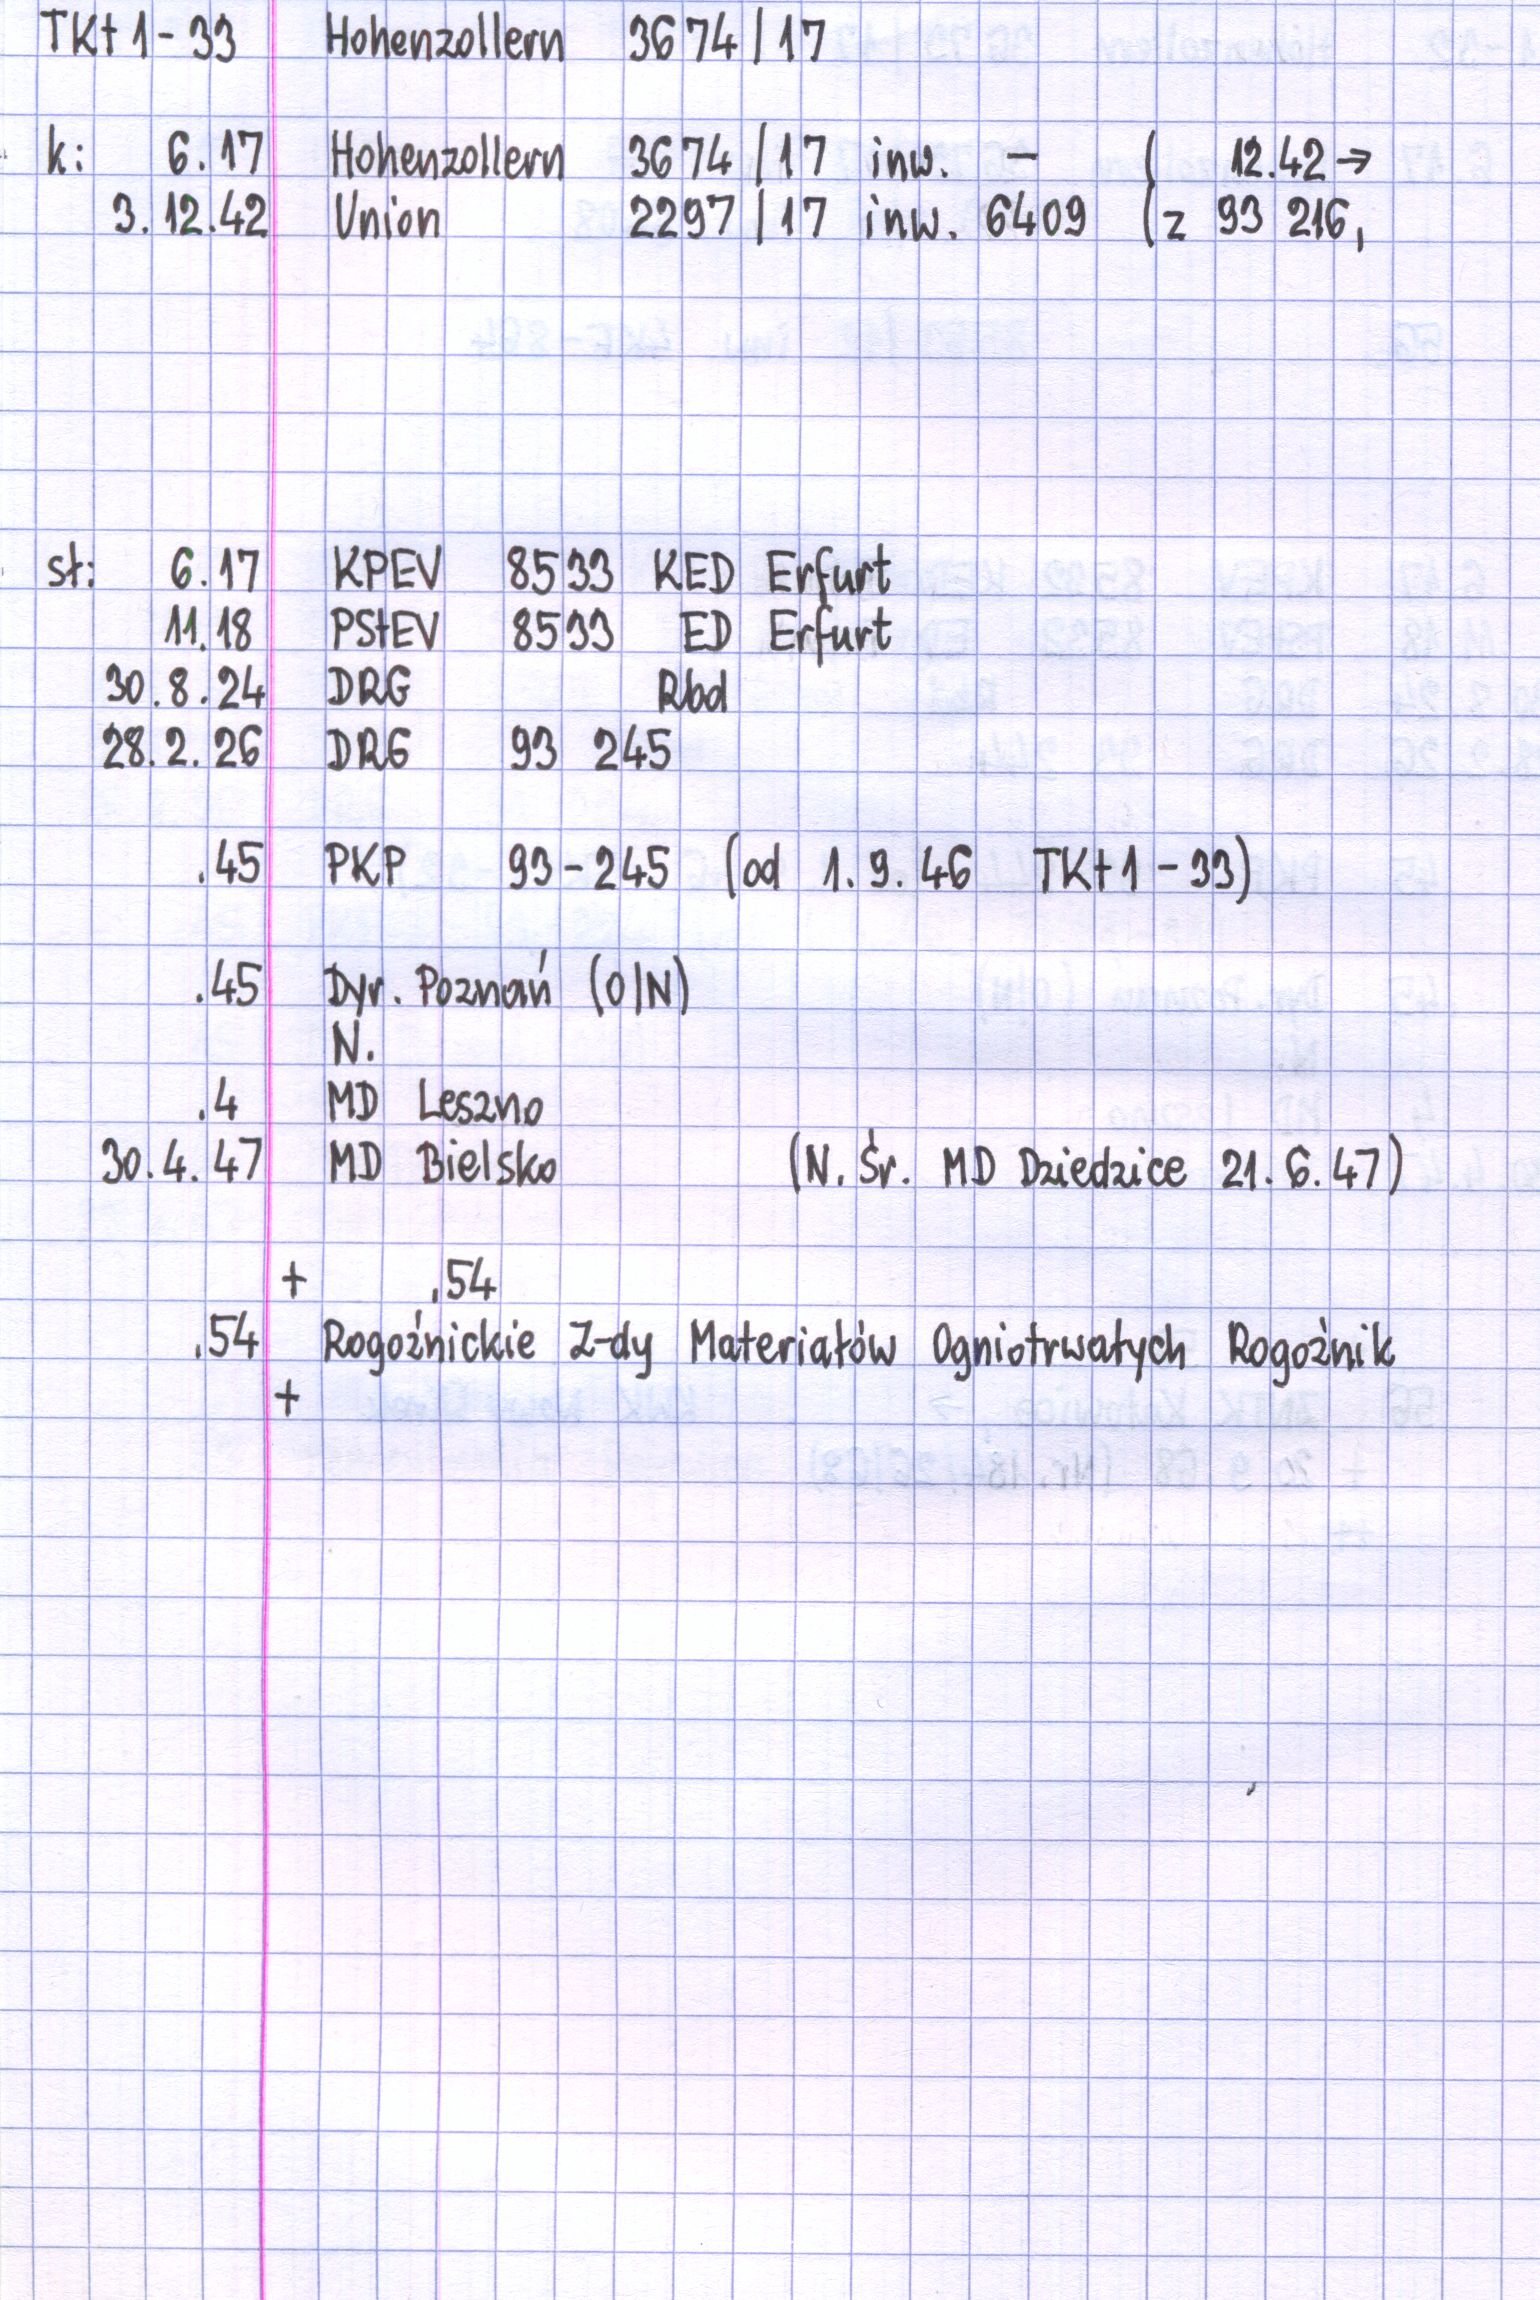 TKt 1-33 Hohenzollern 3674/17
k: 6.17 Hohenzollern 3674/17 inw. — ( 12.42 →
3.12.42 Union 2297/17 inw. 6409 (z 93 216,
st: 6.17 KPEV 8533 KED Erfurt
11.18 PStEV 8533 ED Erfurt
30.8.24 DRG Rbd
28.2.26 DRG 93 245
.45 PKP 93-245 (od 1.9.46 TKt 1-33)
.45 Dyr. Poznań (O/N)
N.
.4 MD Leszno
30.4.47 MD Bielsko (N. Śr. MD Dziedzice 21.6.47)
+ .54
.54 Rogoźnickie Z-dy Materiałów Ogniotrwałych Rogoźnik
+